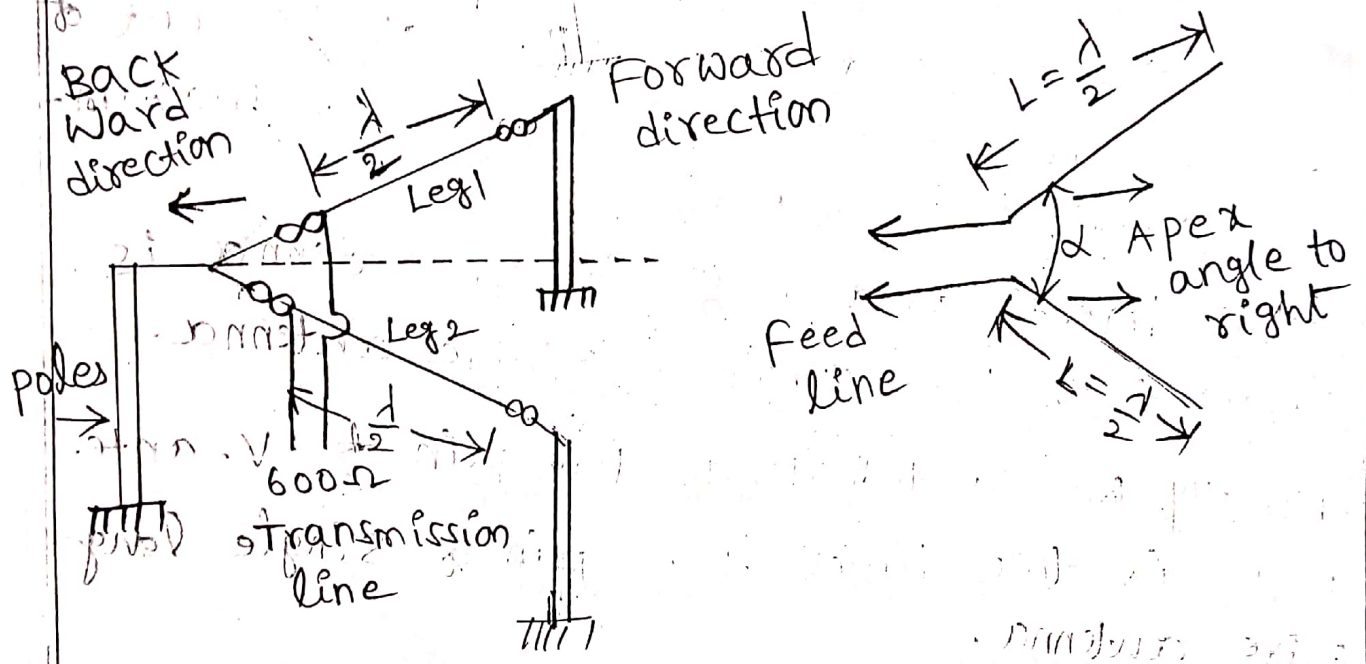 Back
ward
direction
Forward
direction
λ/2
Leg 1
Leg 2
λ/2
poles
600Ω
Transmission
line
L = λ/2
α Apex
angle to
right
Feed
line
L = λ/2